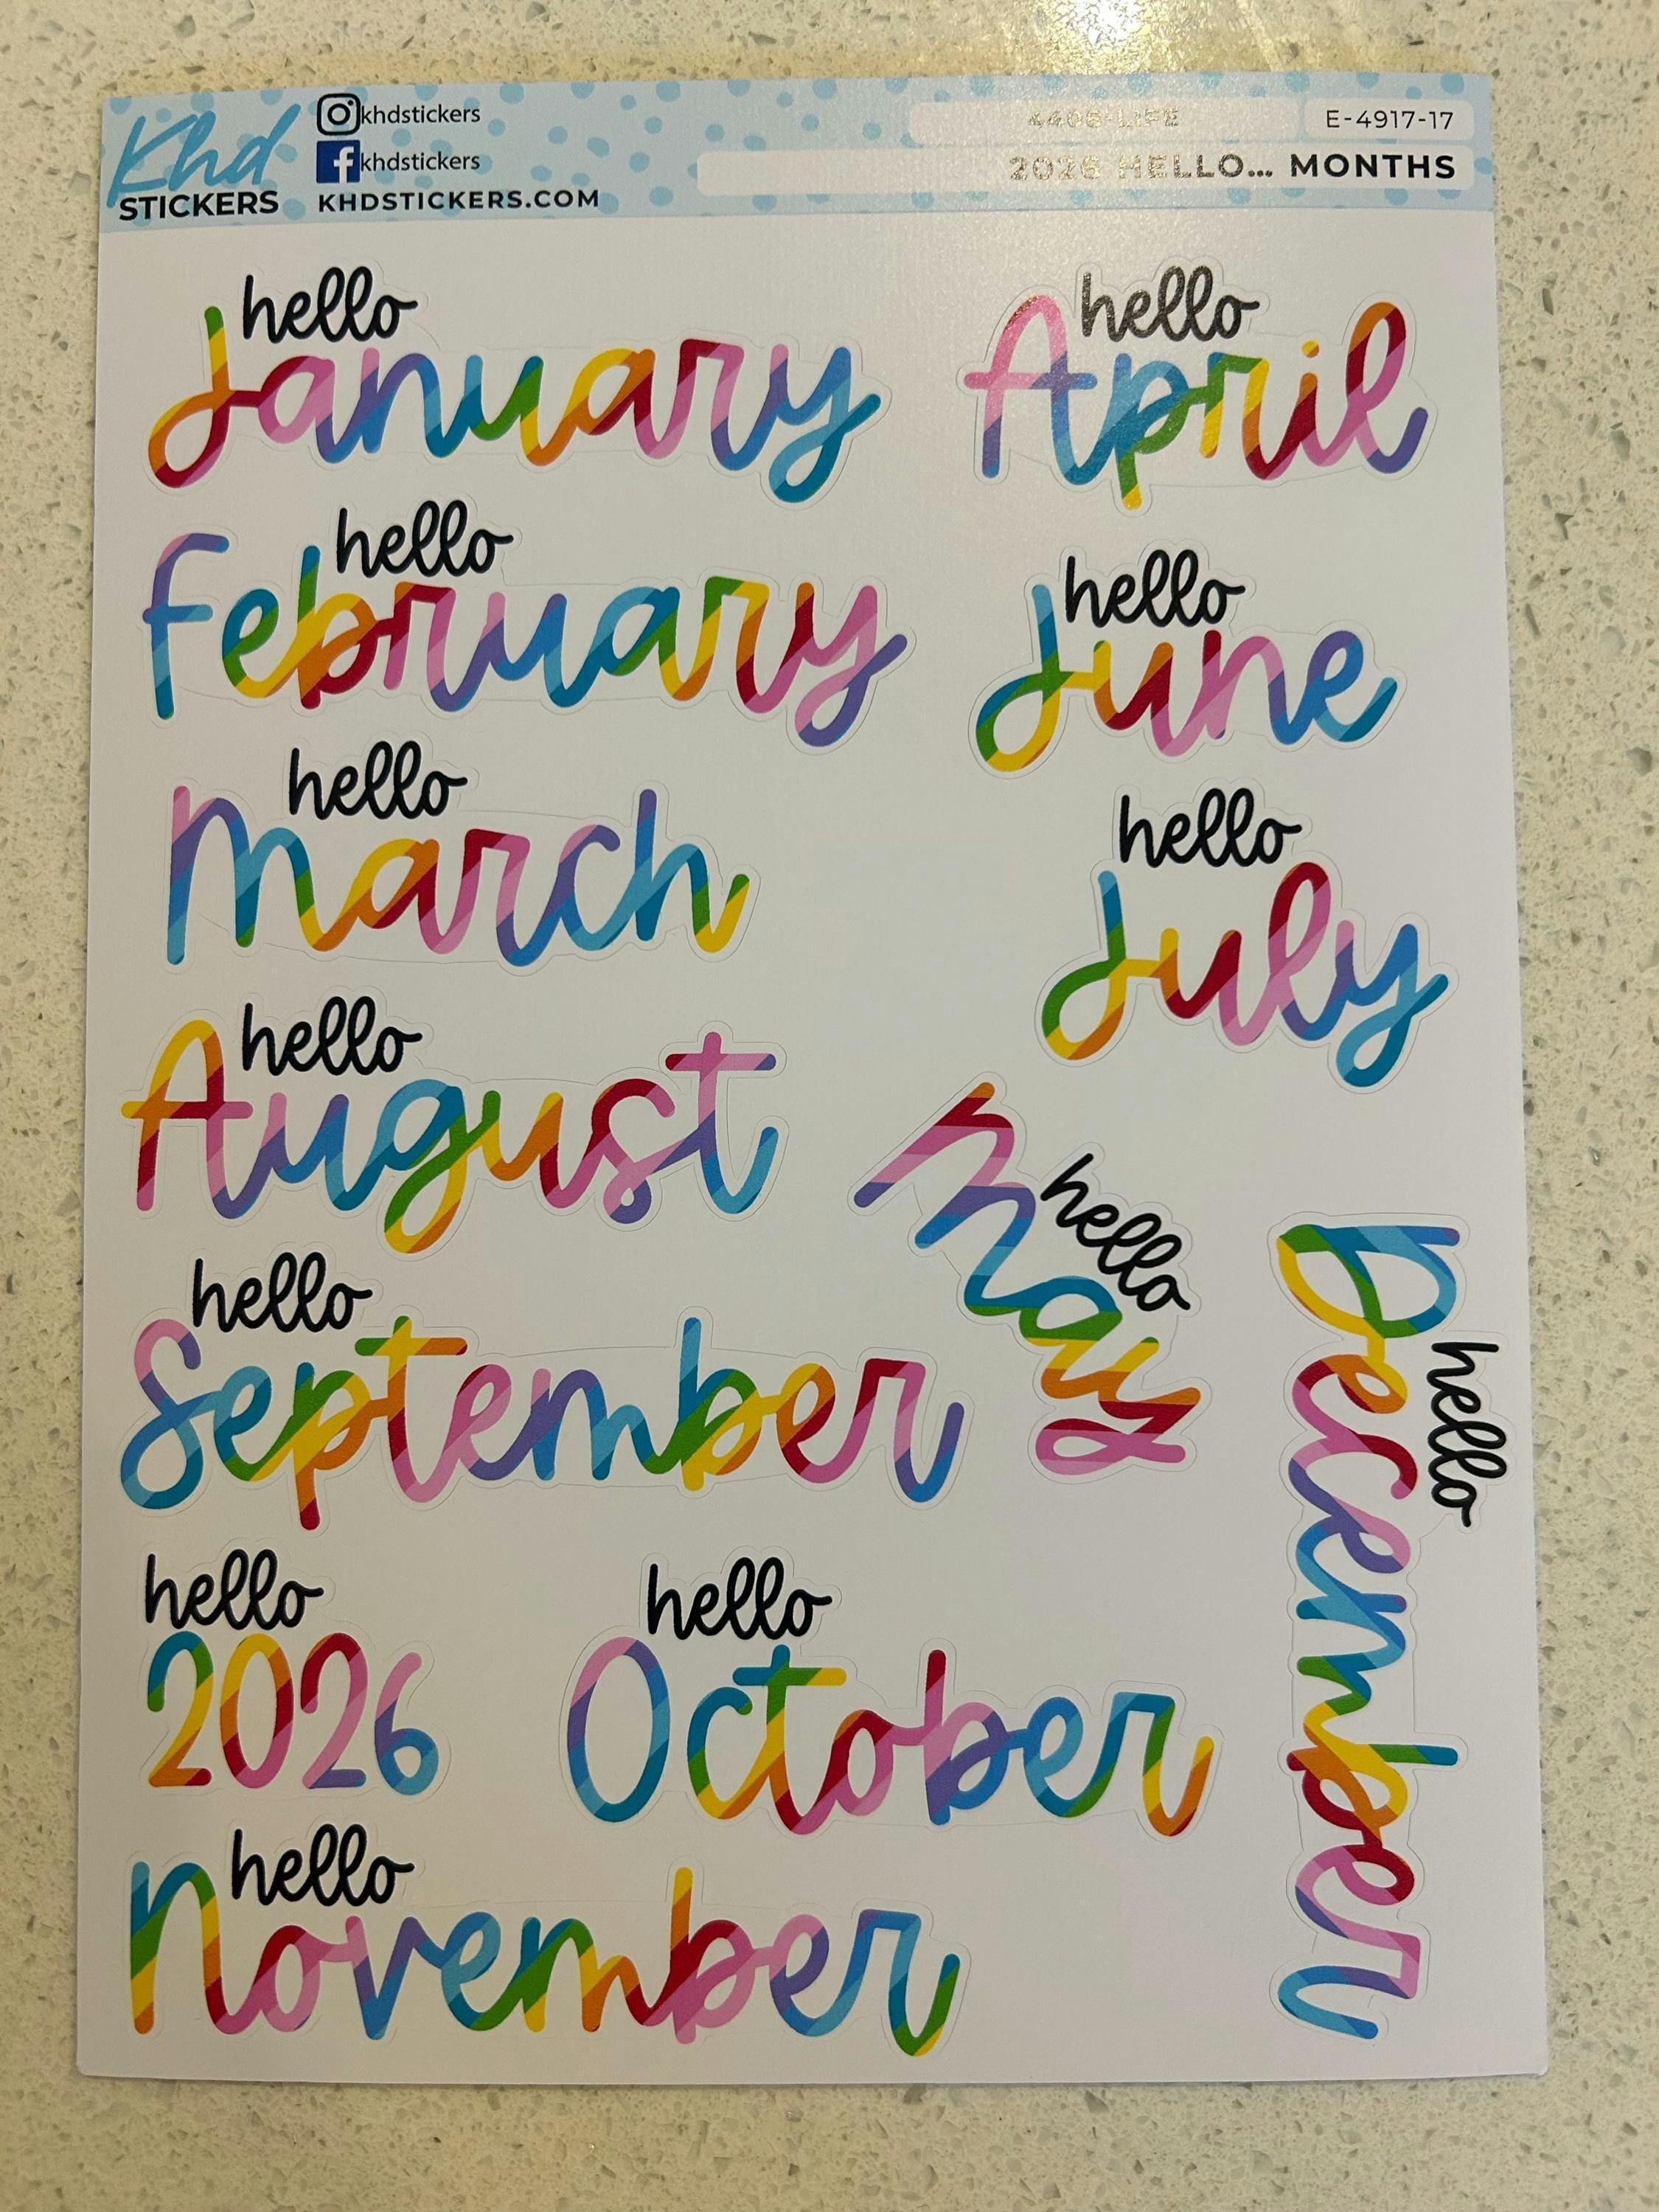 Khd
STICKERS
khdstickers
khdstickers
KHDSTICKERS.COM
4406-LIFE
E-4917-17
2026 HELLO... MONTHS
hello
January
hello
April
hello
February
hello
June
hello
March
hello
July
hello
August
hello
May
hello
September
hello
December
hello
2026
hello
October
hello
November